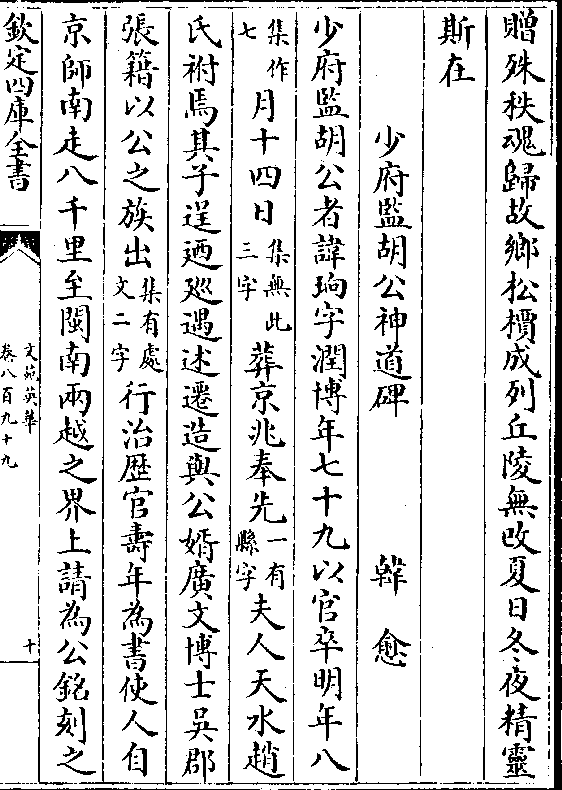 贈殊秩魂歸故鄉松檟成列丘陵無改夏日冬夜精靈
斯在
少府監胡公神道碑 韓愈
少府監胡公者諱珦字潤博年七十九以官卒明年八
集作七月十四日集無此三字葬京兆奉先一有縣字夫人天水趙
氏祔焉其子逞迺廵遇述遷造與公婿廣文博士吳郡
張籍以公之族出集有處文二字行治歴官壽年為書使人自
京師南走八千里至閩南兩越之界上請為公銘刻之
欽定四庫全書
文苑英華
卷八百九十九
十